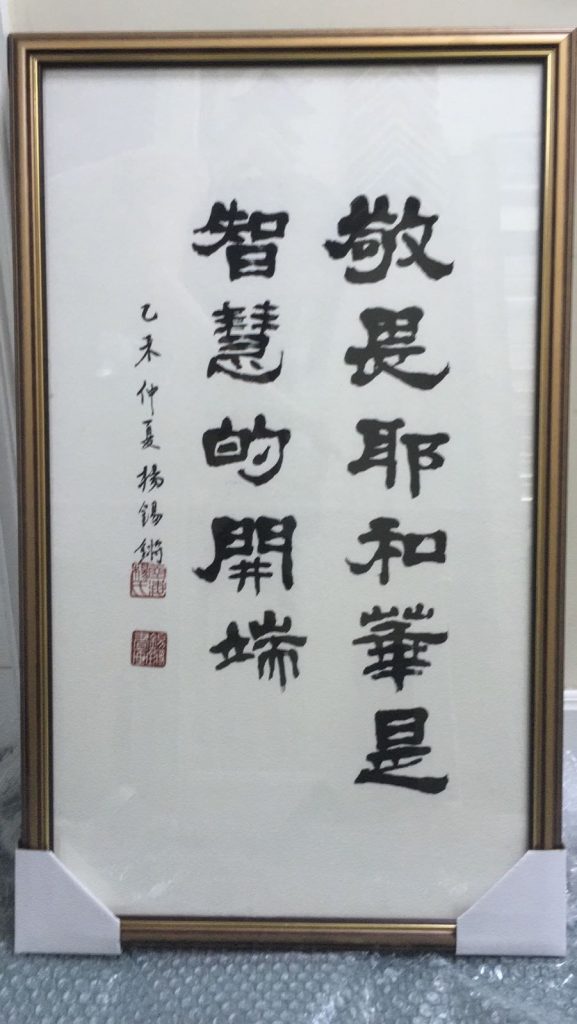 敬畏耶和華是
智慧的開端
乙未仲夏楊錫鏘